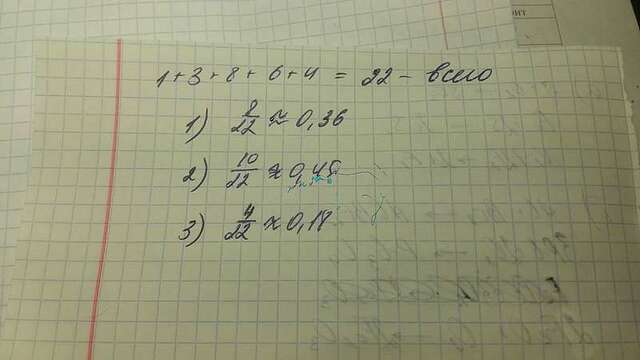 1+3+8+6+4 = 22 - всего
1) 8/22 ≈ 0,36
2) 10/22 ≈ 0,45
3) 4/22 ≈ 0,18